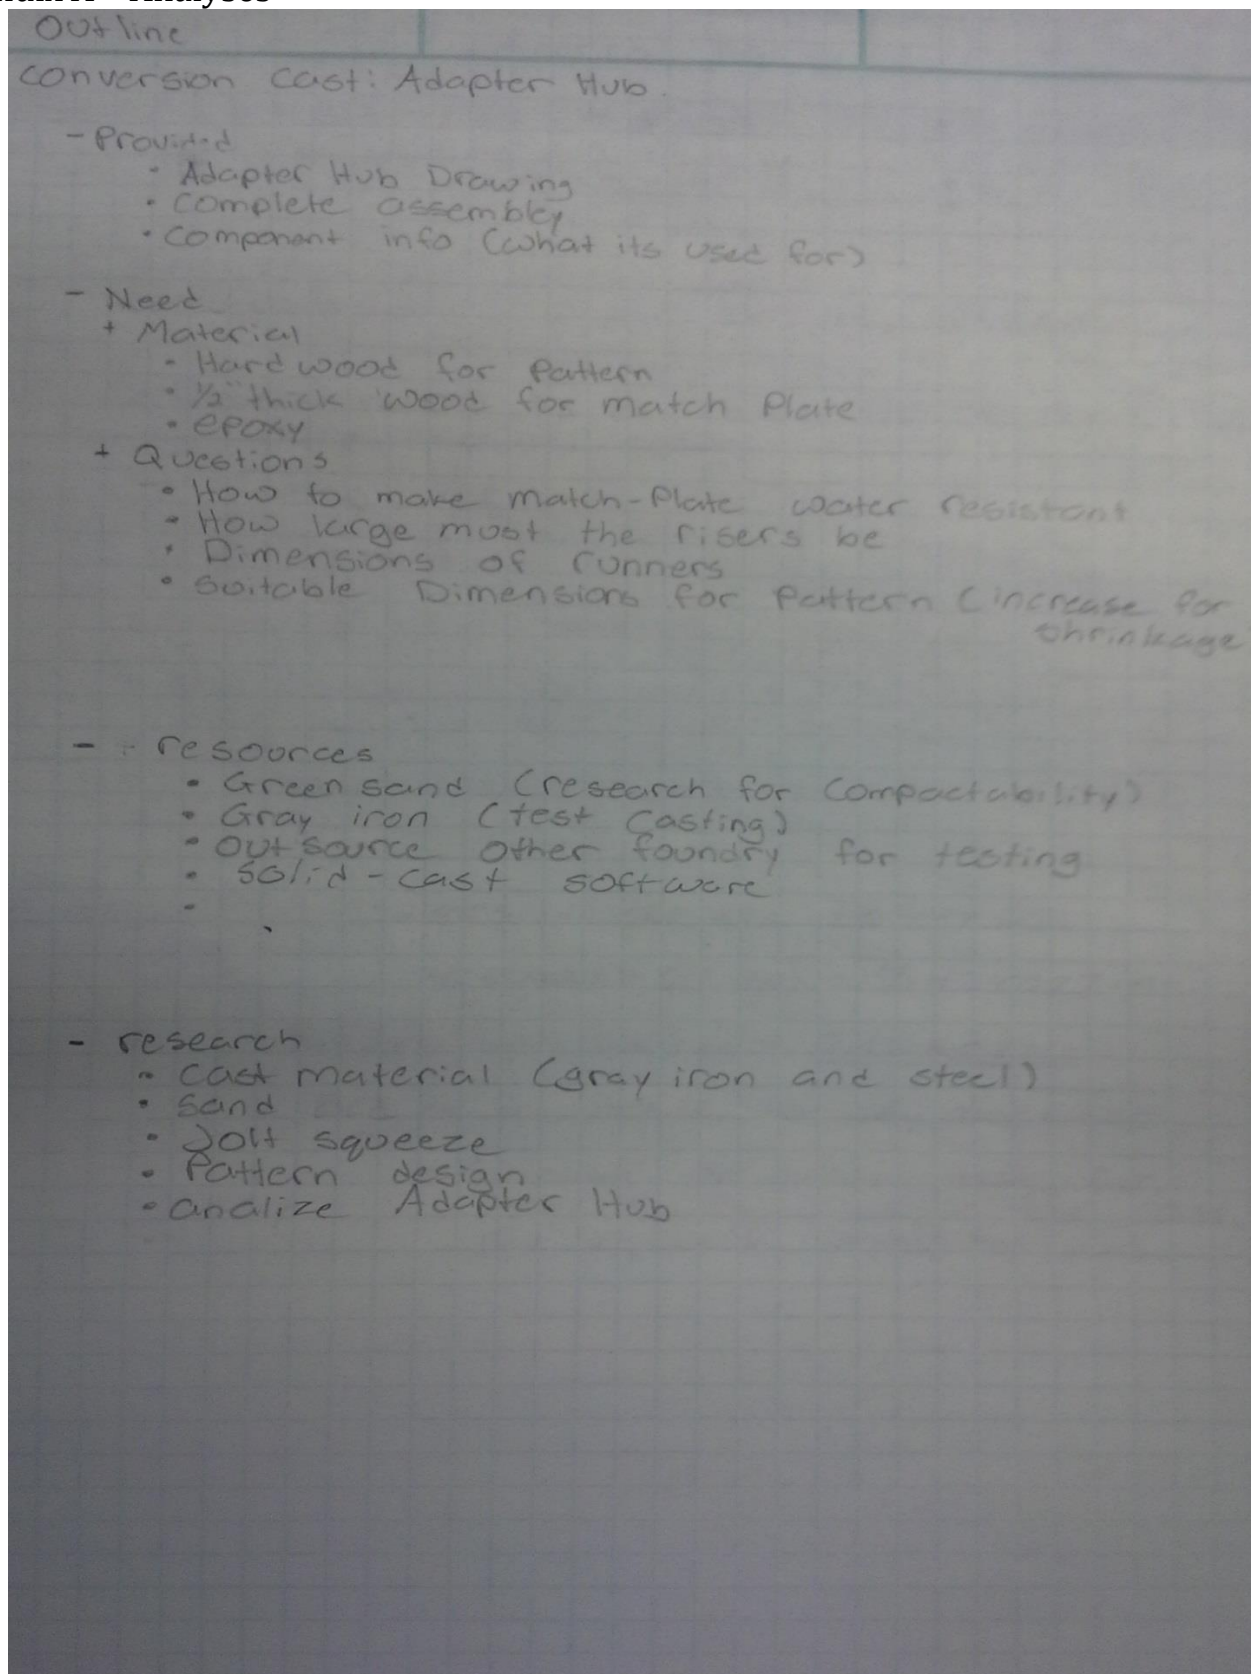 Outline
conversion cast: Adapter Hub.
- Provided
• Adapter Hub Drawing
• Complete assembley
• Component info (what its used for)
- Need
+ Material
• Hard wood for Pattern
• 1/2" thick wood for match Plate
• epoxy
+ Questions
• How to make match-Plate water resistant
• How large must the risers be
• Dimensions of runners
• Suitable Dimensions for Pattern (increase for
shrinkage
- resources
• Green sand (research for compactability)
• Gray iron (test casting)
• outsource other foundry for testing
• Solid-cast software
•
- research
• cast material (gray iron and steel)
• Sand
• Jolt squeeze
• Pattern design
• analize Adapter Hub